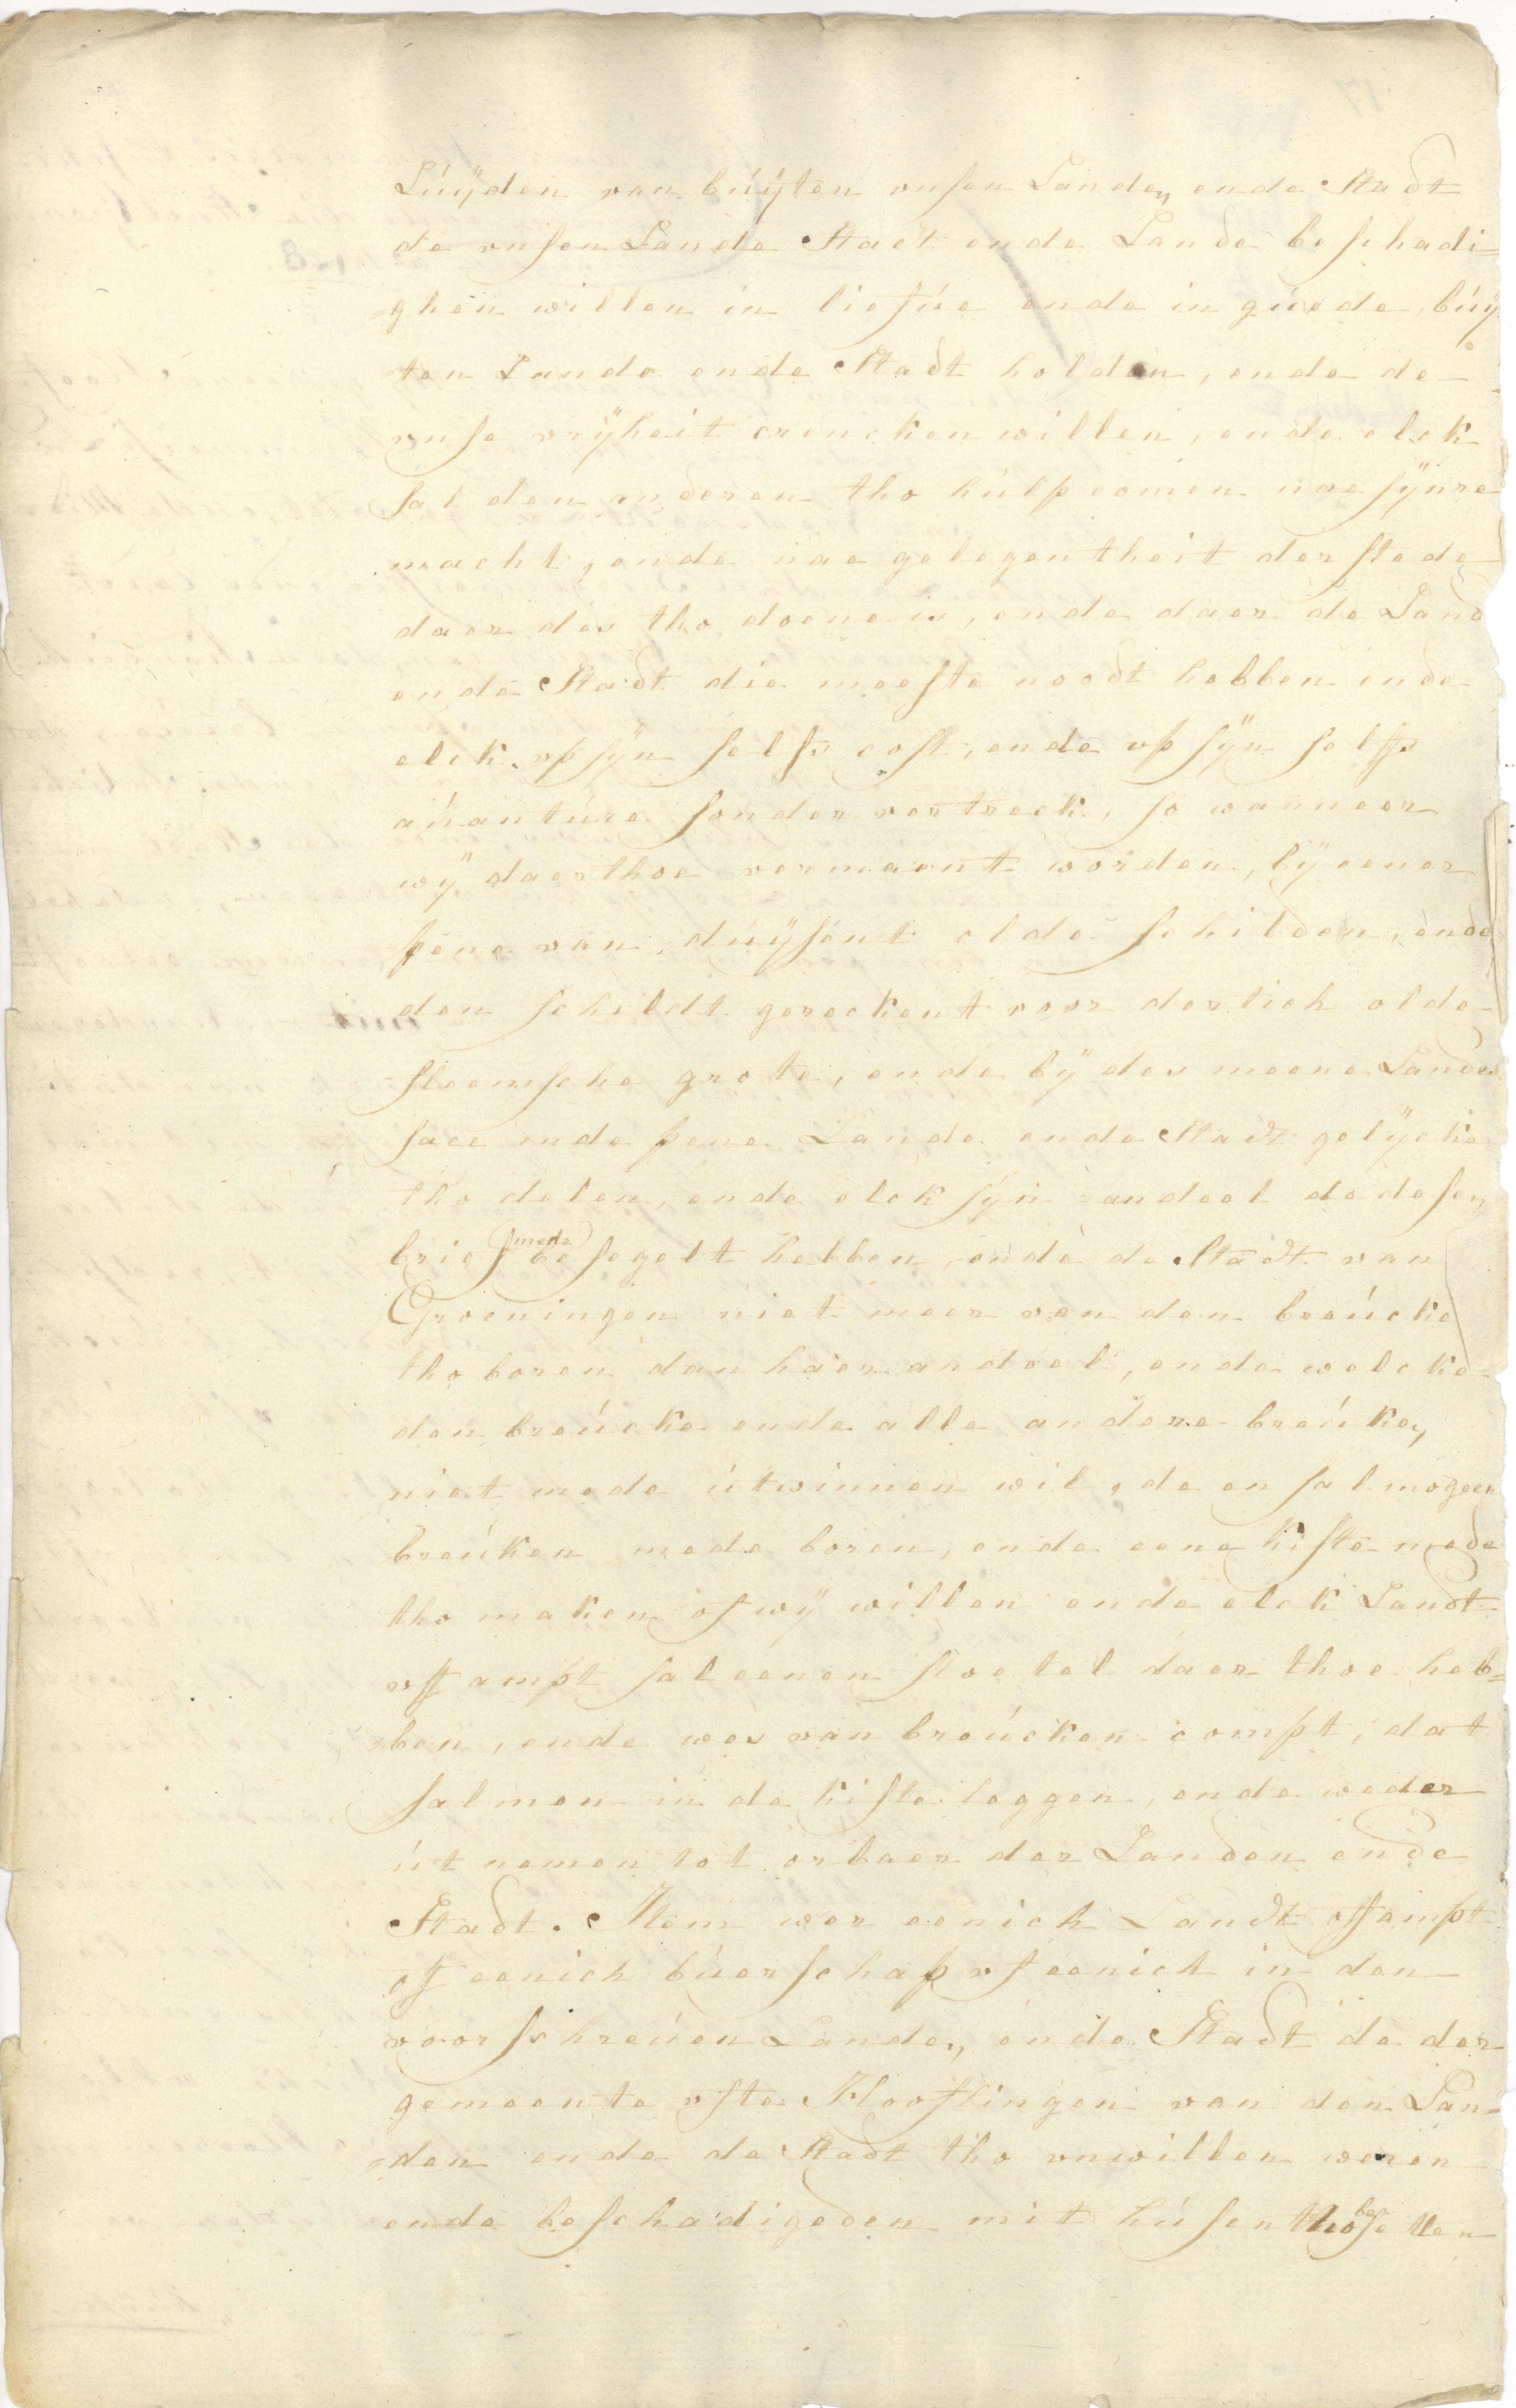 Lúÿden van búÿten vnsen Landen ende Stadt
de vnsen Lande Stadt ende Lande beschadi-
-ghen willen in liefúe ende in gúede, búÿ
ten Lande ende Stadt holden, ende de
vnse vrÿheit crencken willen, ende elck
sal den anderen tho húlp comen nae sÿnre
macht, ende nae gelegentheit der stede
daer des tho doene is, ende daer de Land
ende Stadt die meeste noodt hebben ende
elck vp sÿn selfs cost, ende vp sÿn selffs
aúantúre sonder vertreck, so wanneer
wÿ daerthoe vermaent worden, bÿ eener
pene van dúÿsent olde schilden, ende
den scheldt gereckent voor dertich olde
vleemsche grote, ende bÿ des meene Landes
sace ende pene Lande ende Stadt gelÿcke
tho delen, ende elck sÿn andeel de desen
brief mede besegelt hebben, ende de Stadt van
Groeningen niet meer van den breúcke
tho boren dan haer andeel, ende welcke
den breúcke ende alle andere breúken
niet mede útwinnen wil, de en sal mogeen
breúken mede boren, ende eene kiste mede
tho maken of wÿ willen ende elck Landt
off ampt sal eenen sloetel daer thoe heb=
ben, ende wes van breúcken compt, dat
salmen in de kiste leggen, ende weder
út nemen tot orbaer der Landen ende
Stadt. Item wer eenich Landt off ampt
off eenich búerschap of eenich in den
voorschreúen Landen ende Stadt de der
gemeente ofte Hooftlingen van den Lan-
-den ende de Stadt tho vnwillen weren
ende beschadigeden mit húsen tho besetten